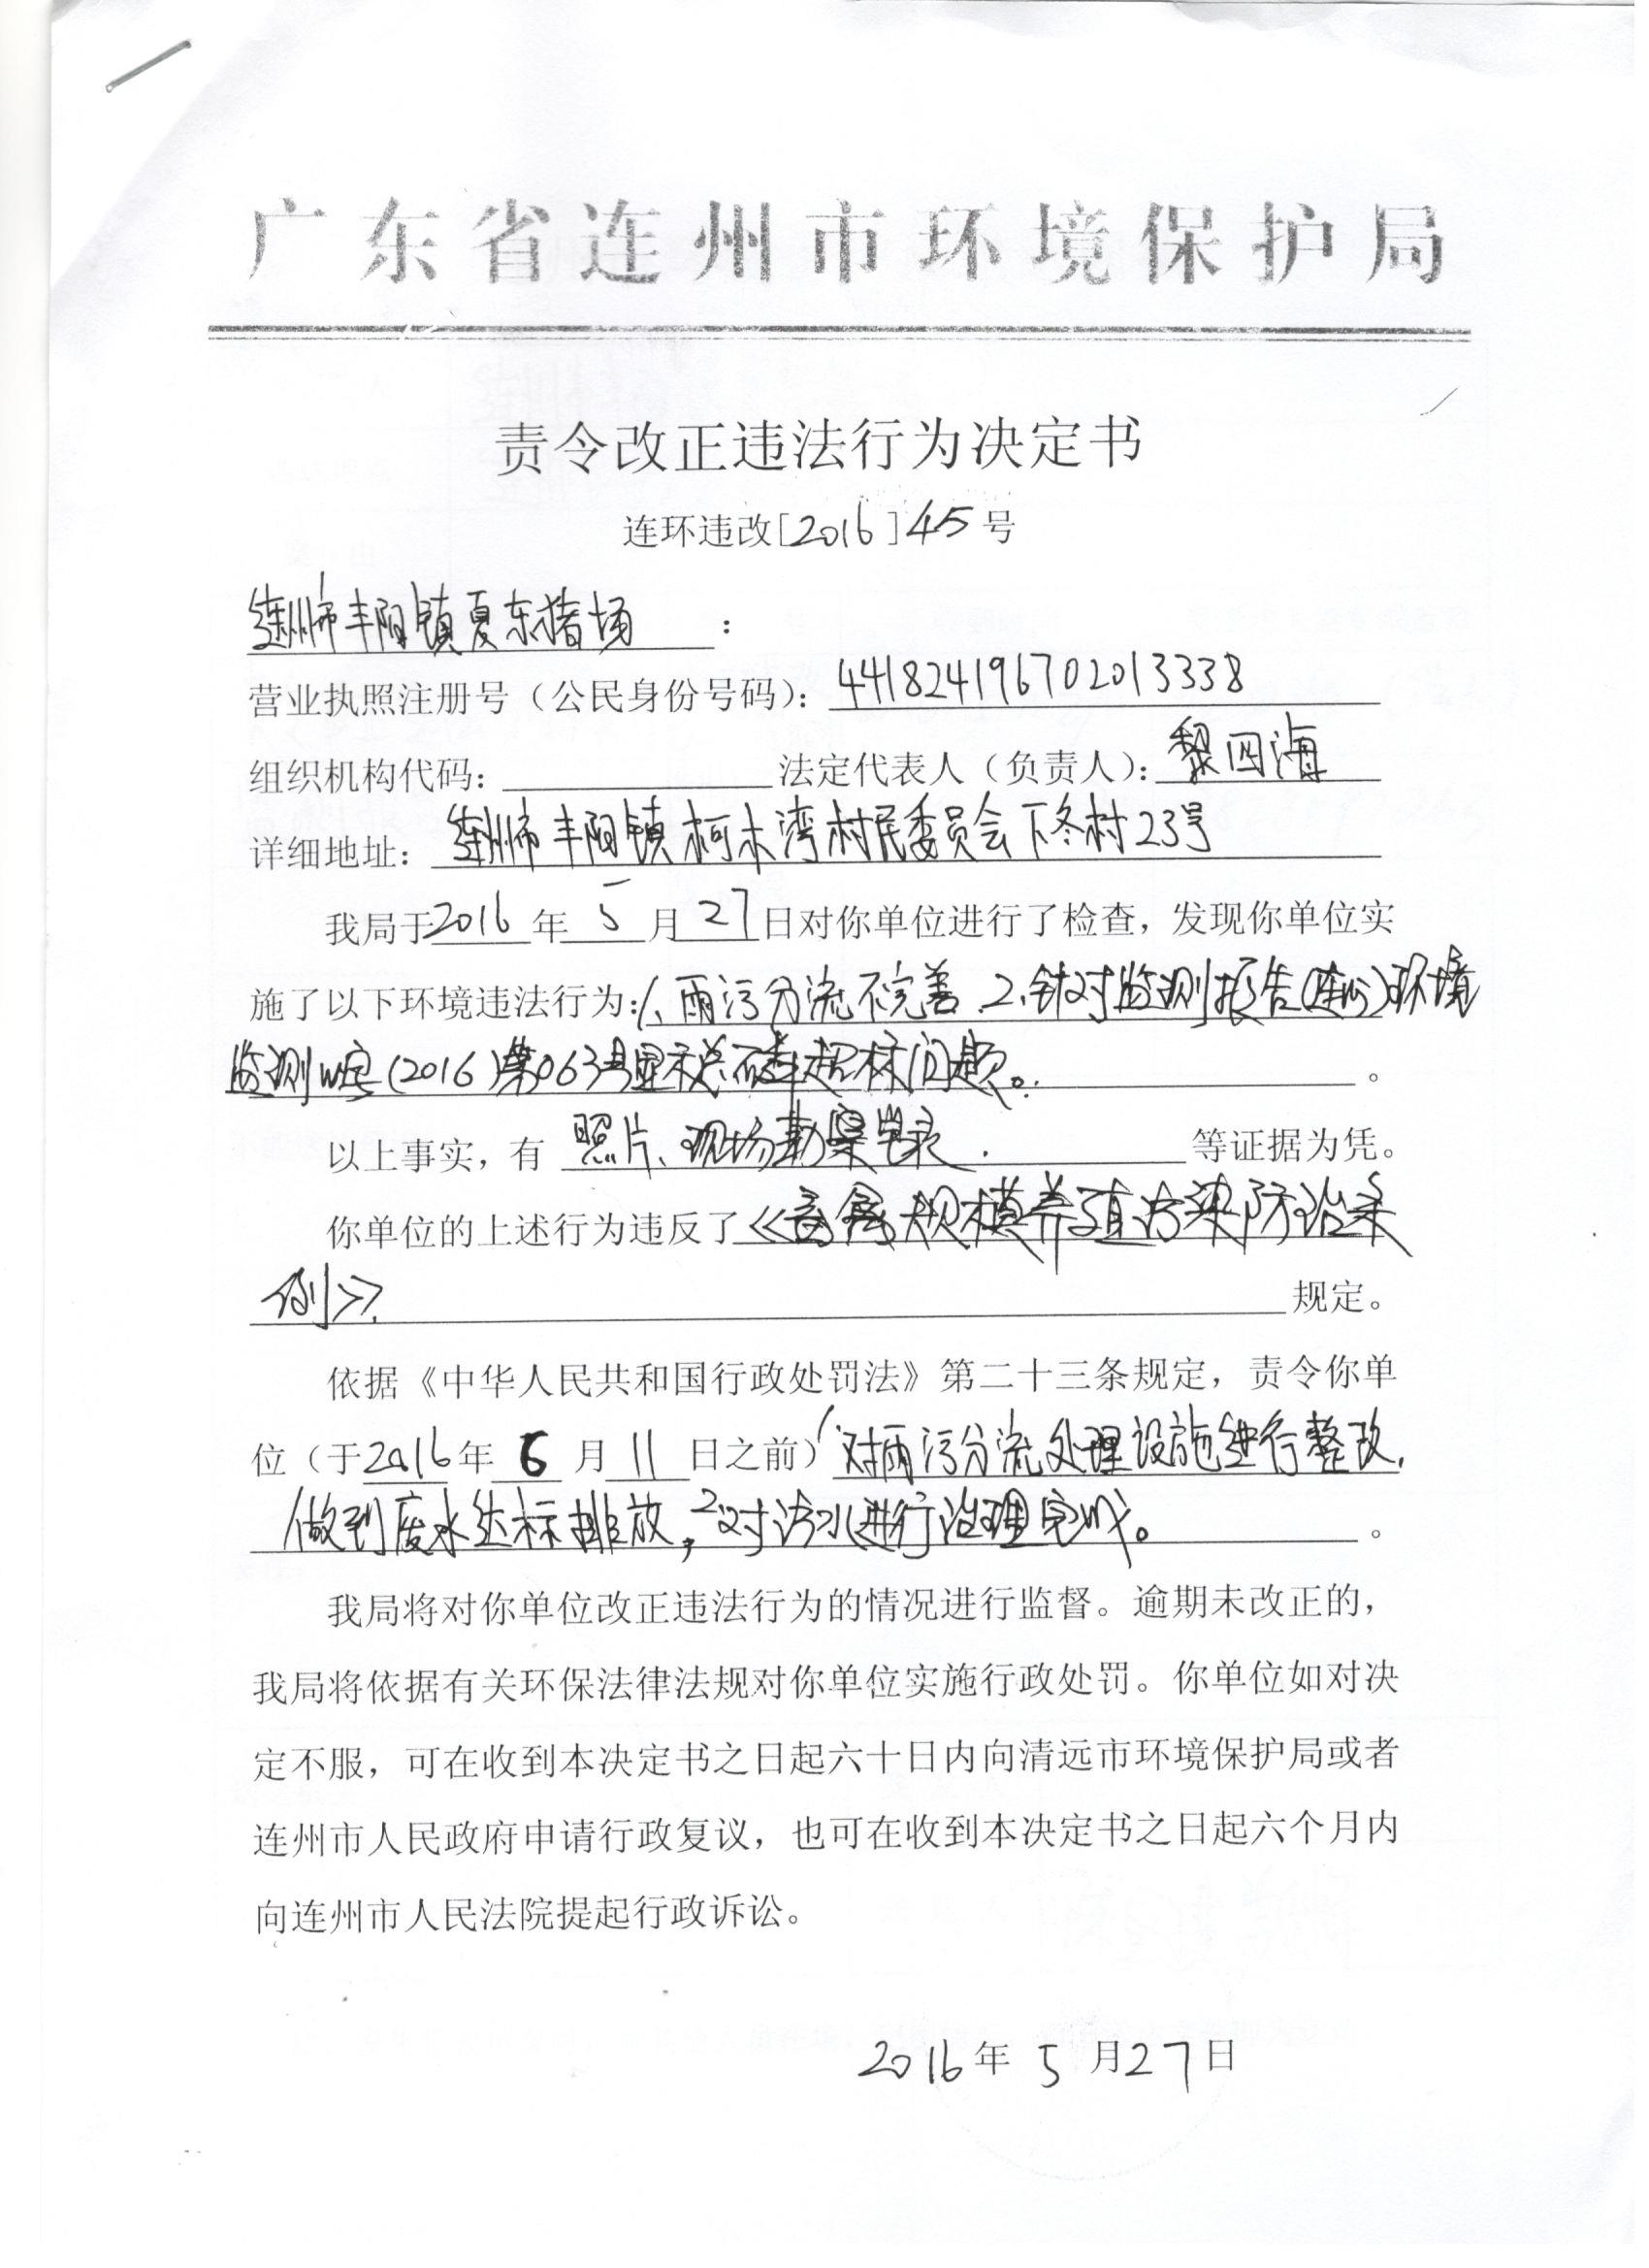 广东省连州市环境保护局
责令改正违法行为决定书
连环违改[2016]45号
连州市丰阳镇夏东猪场：
营业执照注册号（公民身份号码）：441824196702013338
组织机构代码：法定代表人（负责人）：黎四海
详细地址：连州市丰阳镇柯木湾村民委员会下冬村23号
我局于2016年5月27日对你单位进行了检查，发现你单位实
施了以下环境违法行为：1、雨污分流不完善.2、针对监测报告(连州)环境
监测W字(2016)第063号显示总磷超标问题。。
以上事实，有照片、现场勘察笔录.等证据为凭。
你单位的上述行为违反了《畜禽规模养殖污染防治条
例》.规定。
依据《中华人民共和国行政处罚法》第二十三条规定，责令你单
位（于2016年6月11日之前）1对雨污分流处理设施进行整改，
做到废水达标排放，2对污水进行治理完成。。
我局将对你单位改正违法行为的情况进行监督。逾期未改正的，
我局将依据有关环保法律法规对你单位实施行政处罚。你单位如对决
定不服，可在收到本决定书之日起六十日内向清远市环境保护局或者
连州市人民政府申请行政复议，也可在收到本决定书之日起六个月内
向连州市人民法院提起行政诉讼。
2016年5月27日